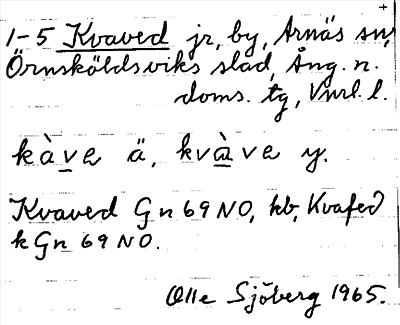 1-5 Kvaved jr, by, Arnäs sn,
Örnsköldsviks stad, Ång. n.
doms. tg, Vnrl. l.
kàve ä, kvàve y.
Kvaved Gn 69 NO, kb, Kvafed
k Gn 69 NO.
Olle Sjöberg 1965.